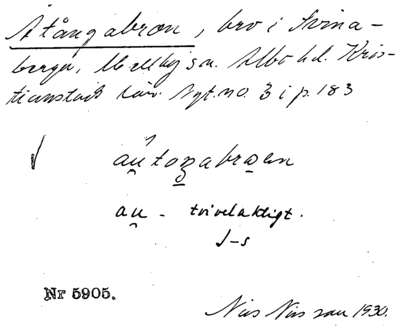 Åtångabron, bro i Svina-
berga, Mellby sn. Albo hd. Kris-
tianstads län. Nyt.no. 3 i p. 183
√ au̯toŋabroən
au̯ - tvivelaktigt.
J-s
Nr 5905.
Nils Nilsson 1930.